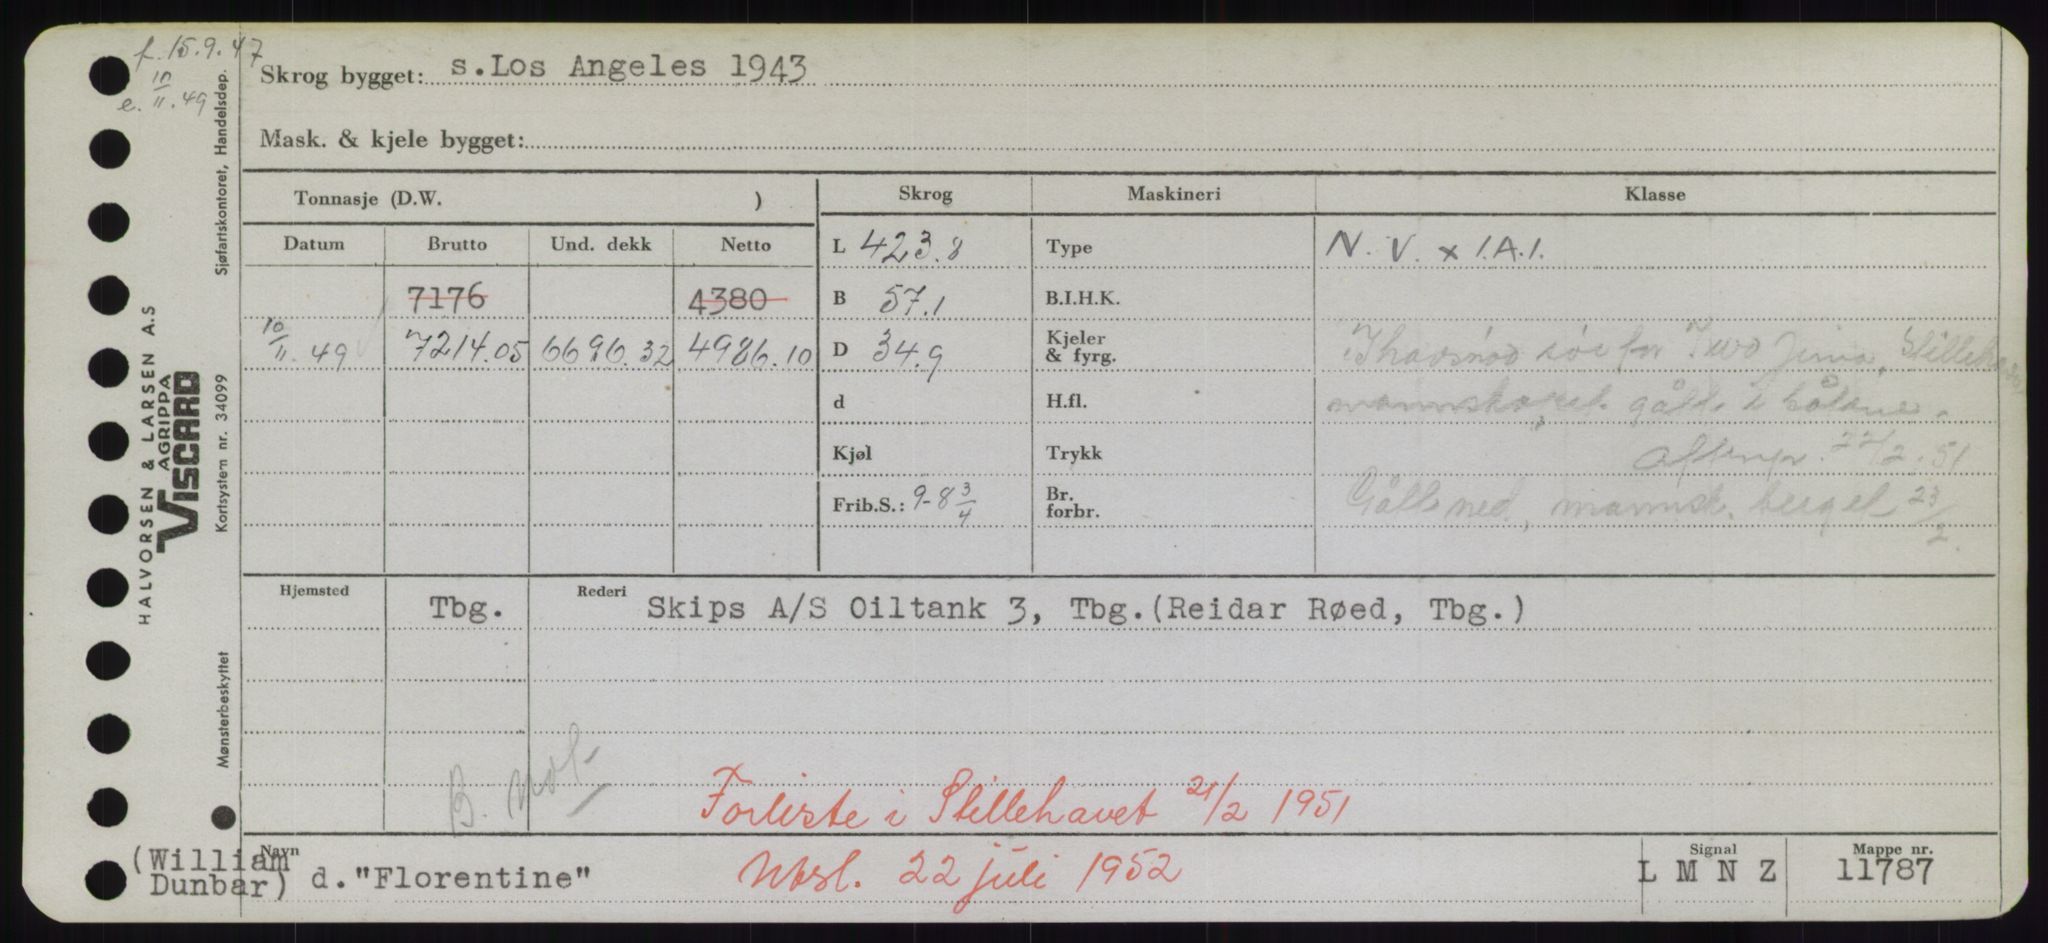 f. 15.9.47
e. 10/11.49
Skrog bygget: s. Los Angeles 1943
Mask. & kjele bygget:
Tonnasje (D.W. )
Skrog
Maskineri
Klasse
Datum Brutto Und. dekk Netto
L 423.8
Type
N. V. x 1.A.1.
7176 4380
B 57.1
B.I.H.K.
10/11.49 7214.05 6696.32 4986.10
D 34.9
Kjeler
& fyrg.
Iwo Jima, Stilleha
d
H.fl.
mannskapet gått i båtene.
Kjøl
Trykk
Aftenp. 22/2.51
Frib.S.: 9-8 3/4
Br.
forbr.
Gått ned, mannsk. berget 23/2.
Hjemsted Tbg.
Rederi Skips A/S Oiltank 3, Tbg. (Reidar Røed, Tbg.)
B. not.
Forliste i Stillehavet 21/2 1951
Navn
(William
Dunbar) d. "Florentine"
Utsl. 22 juli 1952
Signal
L M N Z
Mappe nr.
11787
HALVORSEN & LARSEN A.S
AGRIPPA
VISCARD
Sjøfartskontoret, Handelsdep.
Kortsystem nr. 34099
Mønsterbeskyttet